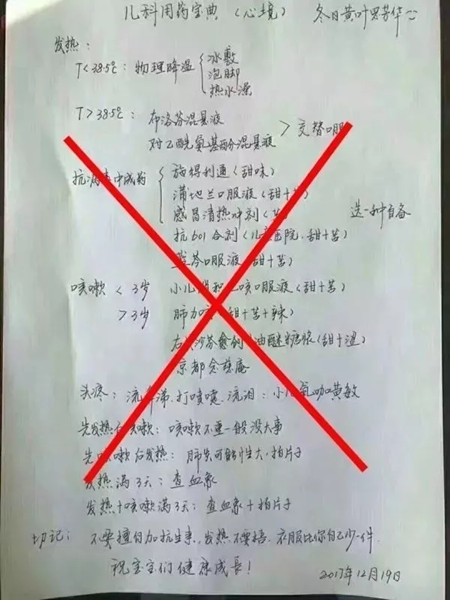 儿科用药宝典（心境） 冬日黄叶
发热：
T<38.5℃：物理降温 { 冰敷
泡脚
热水澡
T>38.5℃： 布洛芬混悬液
对乙酰氨基酚混悬液 > 交替口服
抗病毒中成药 { 甜得利通（甜味）
蒲地兰口服液（甜+苦）
感冒清热冲剂（苦） 选一种自备
抗601合剂（儿童医院，甜+苦）
芩口服液（甜+苦）
咳嗽 < 3岁 小儿 咳口服液（甜+苦）
> 3岁 肺 （甜+苦+辣）
右 沙芬愈创 油醚糖浆（甜+涩）
京都念慈庵
头疼：流鼻涕、打喷嚏、流泪：小儿氨咖黄敏
先发热后咳嗽：咳嗽不重一般没大事
先咳嗽后发热：肺炎可能性大，拍片子
发热满3天：查血象
发热+咳嗽满3天：查血象+拍片子
切记：不要擅自加抗生素，发热不要捂，衣服比你自己少一件
祝宝宝们健康成长！ 2017年12月19日